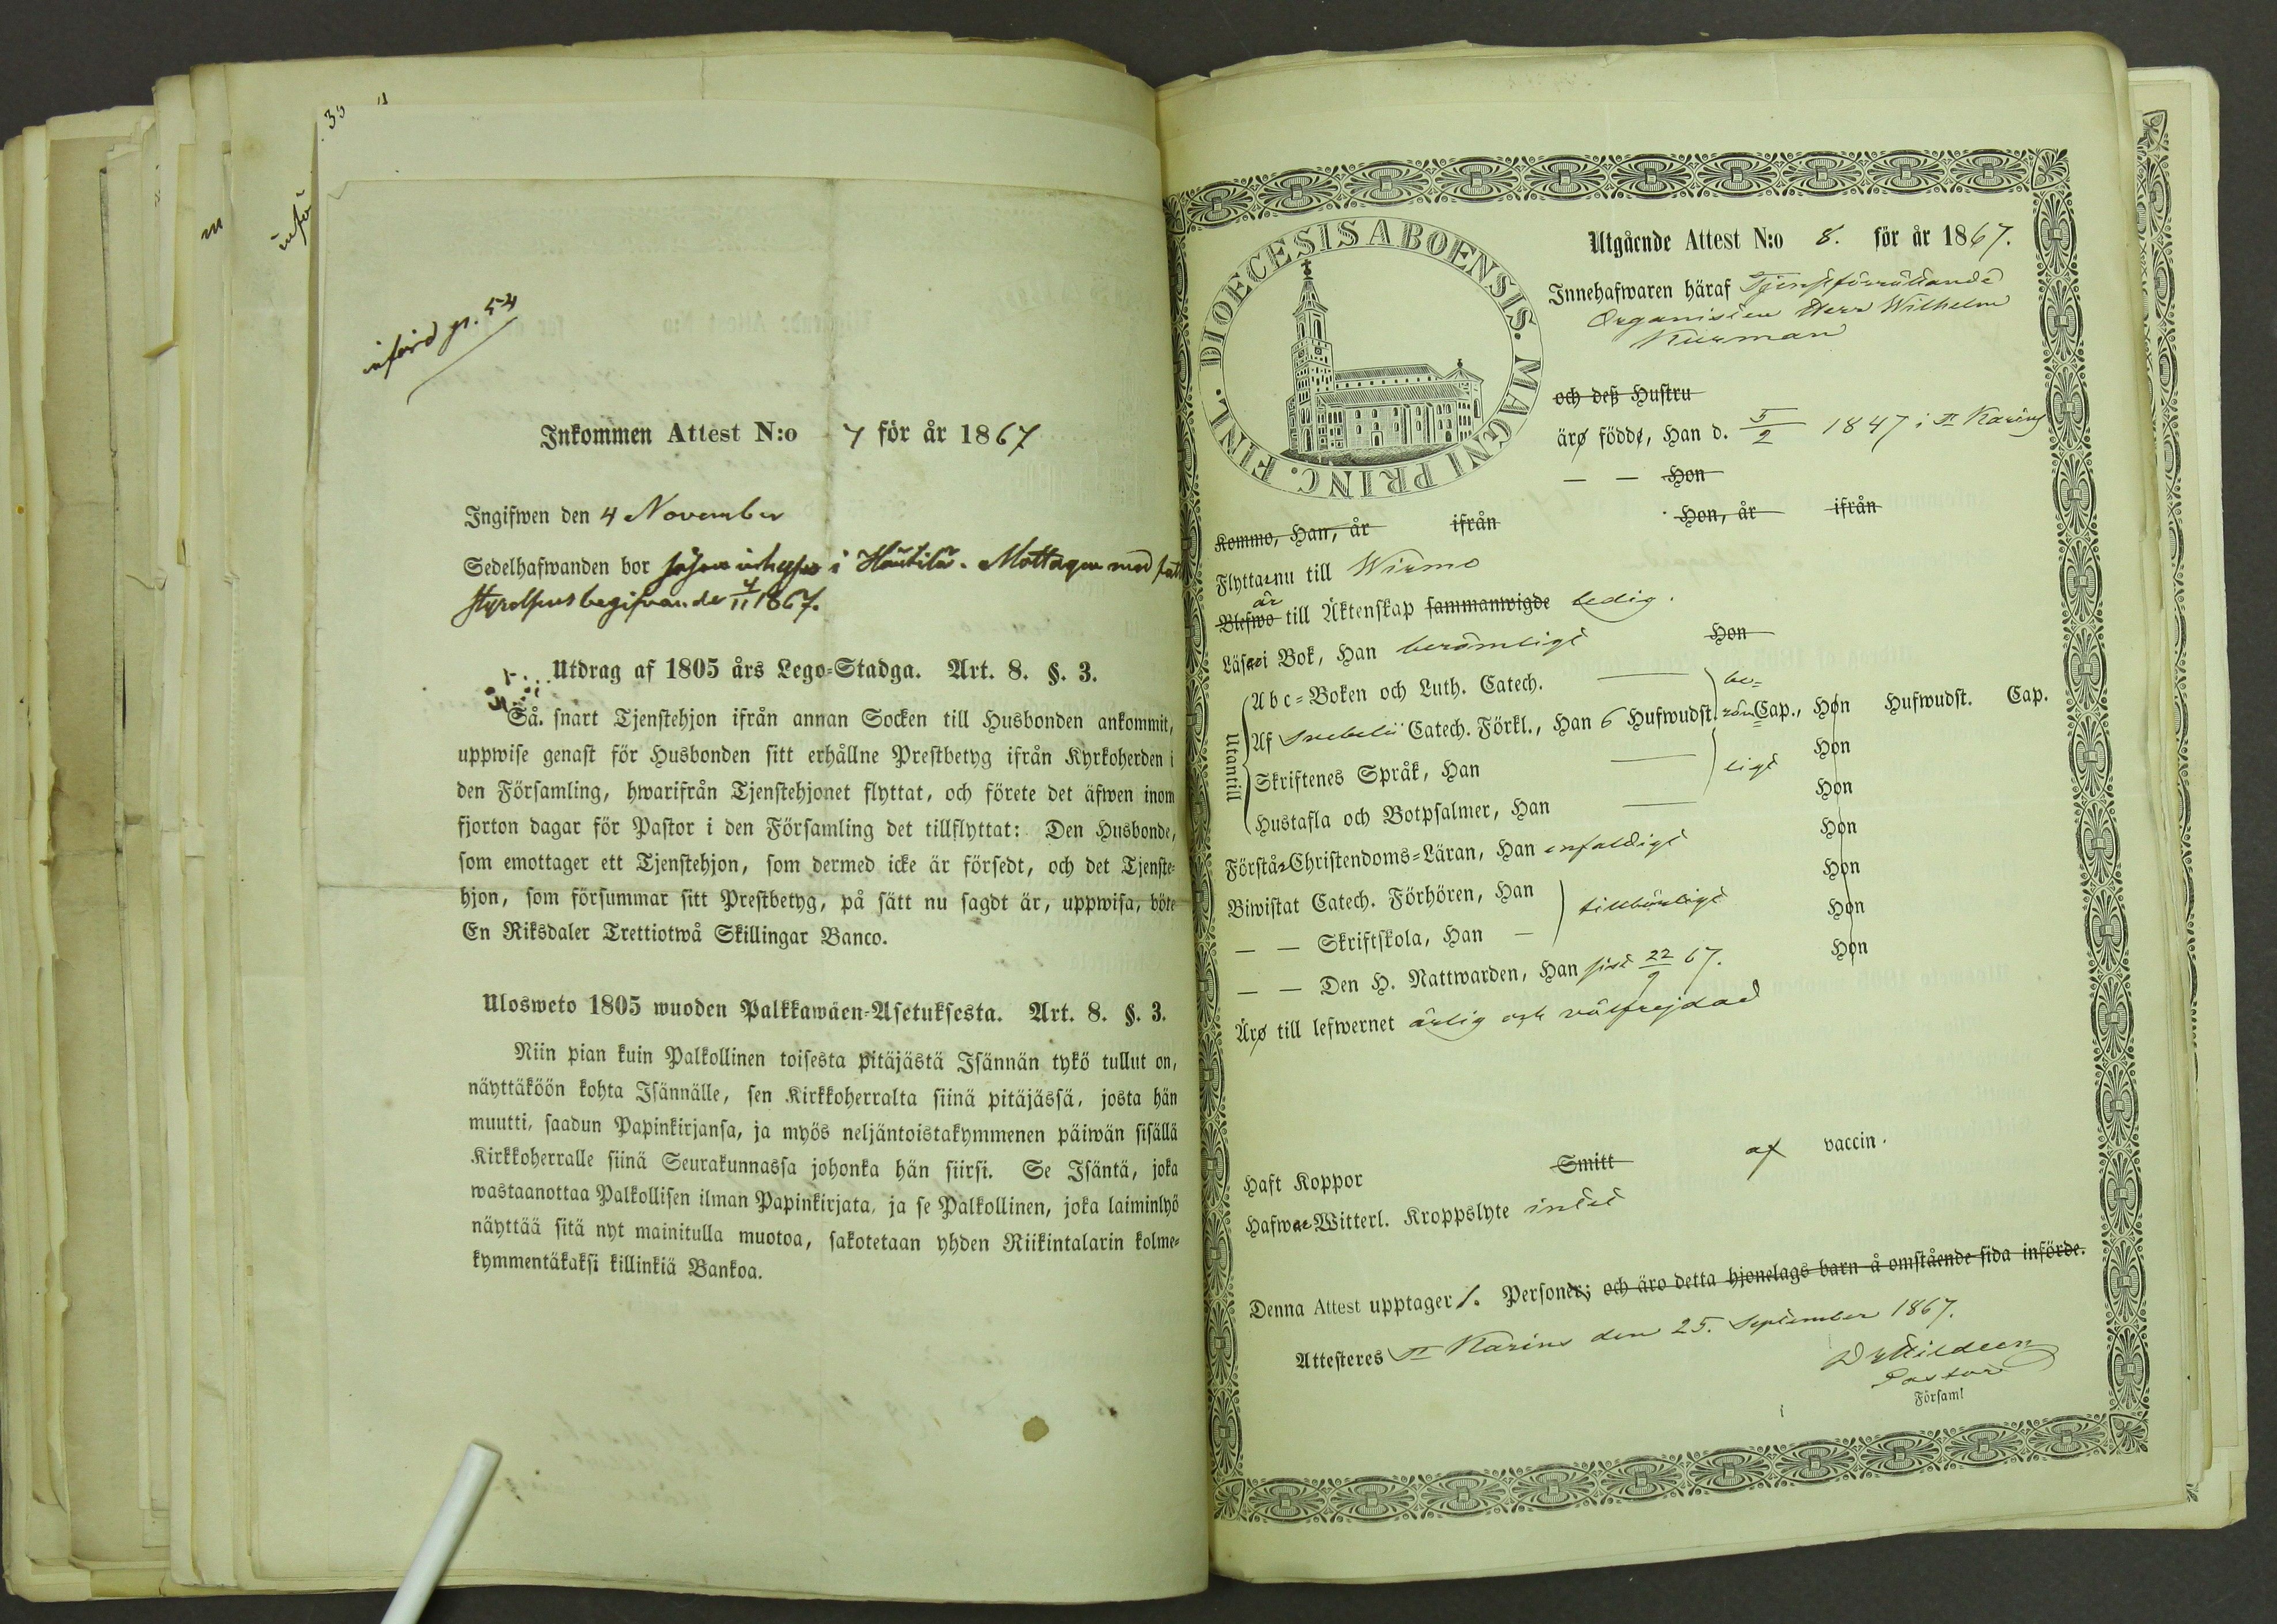 införd p. 54
Inkommen Attest N:o 7 för år 1867
Ingifwen den 4 November
Sedelhafwanden bor såsom inhyses i Hautila. Mottagen med fatt
styrelsens begifvande 4/11 1867.
Utdrag af 1805 års Lego-Stadga. Art. 8. §. 3.
Så snart Tjenstehjon ifrån annan Socken till Husbonden ankommit,
uppwise genast för Husbonden sitt erhållne Prestbetyg ifrån Kyrkoherden i
den Församling, hwarifrån Tjenstehjonet flyttat, och förete det äfwen inom
fjorton dagar för Pastor i den Församling det tillflyttat: Den Husbonde,
som emottager ett Tjenstehjon, som dermed icke är försedt, och det Tjenste-
hjon, som försummar sitt Prestbetyg, på sätt nu sagdt är, uppwisa, böte
En Riksdaler Trettiotwå Skillingar Banco.
Ulosweto 1805 wuoden Palkkawäen-Asetuksesta. Art. 8. §. 3.
Niin pian kuin Palkollinen toisesta pitäjästä Isännän tykö tullut on,
näyttäköön kohta Isännälle, sen Kirkkoherralta siinä pitäjässä, josta hän
muutti, saadun Papinkirjansa, ja myös neljäntoistakymmenen päiwän sisällä
Kirkkoherralle siinä Seurakunnassa johonka hän siirsi. Se Isäntä, joka
wastaanottaa Palkollisen ilman Papinkirjata, ja se Palkollinen, joka laiminlyö
näyttää sitä nyt mainitulla muotoa, sakotetaan yhden Riikintalarin kolme-
kymmentäkaksi killinkiä Bankoa.
DIOECESIS ABOENSIS. MAGNI PRINC. FINL.
Utgående Attest N:o 8. för år 1867.
Innehafwaren häraf Tjenstförrättande
Organisten Herr Wilhelm
Kurman
och deß Hustru
äro födde, Han d. 5/2 1847 i St Karins
— — Hon
Kommo, Han, år ifrån Hon, år ifrån
Flyttar nu till Wirmo
är
Blefwo till Äktenskap sammanwigde ledig.
Läser i Bok, Han berömligt Hon
Utantill
Abc-Boken och Luth. Catech. — be-
Af Svebelii Catech. Förkl., Han 6 Hufwudst. röm Cap., Hon Hufwudst. Cap.
Skriftenes Språk, Han — ligt Hon
Hustafla och Botpsalmer, Han — Hon
Förstår Christendoms-Läran, Han enfaldigt Hon
Biwistat Catech. Förhören, Han tillbörligt Hon
— — Skriftskola, Han — Hon
— — Den H. Nattwarden, Han sist 22/9 67. Hon
Äro till lefwernet ärlig och välfrejdad
Haft Koppor Smitt af vaccin.
Hafwa Witterl. Kroppslyte intet
Denna Attest upptager 1. Personer; och äro detta hjonelags barn å omstående sida införde.
Attesteres St Karins den 25. September 1867.
Pastor
Församl